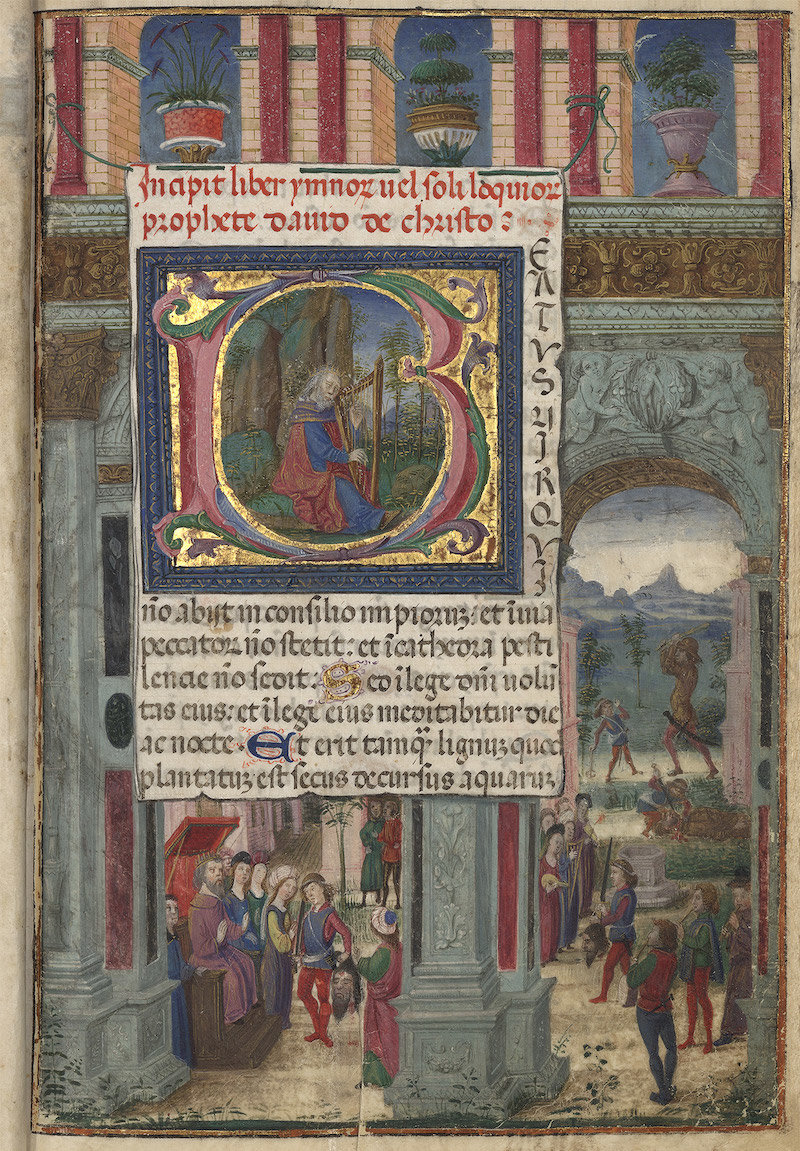 Incipit liber ymnoꝝ uel soliloquioꝝ
prophete dauid de christo:
B
EATVS VIR QVI
nō abijt in consilio impioruꝫ: et ī uia
peccatoꝝ nō stetit: et ī cathedra pesti
lencie nō sedit: Sed ī lege dn̄i uolū
tas eius: et ī lege eius meditabitur die
ac nocte Et erit tamqꝫ lignuꝫ quod
plantatuꝫ est secus decursus aquaruꝫ